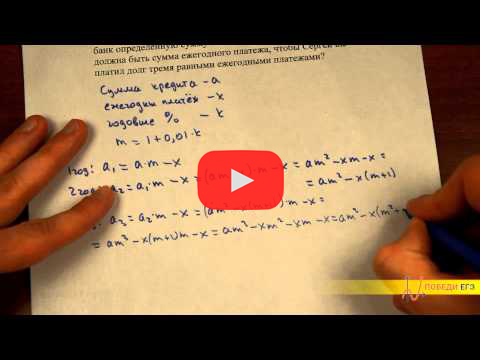 банк определенную
должна быть сумма ежегодного платежа, чтобы Сергей
платил долг тремя равными ежегодными платежами?
Сумма кредита – a
ежегодный платёж – x
годовые % – k
m = 1 + 0,01·k
1 год: a₁ = a·m – x
2 a₂ = a₁·m – x = (am – )·m – x = am² – xm – x =
= am² – x(m+1)
: a₃ = a₂·m – x = (am² – )·m – x =
= am³ – x(m+1)m – x = am³ – xm² – xm – x = am³ – x(m² +
ПОБЕДИ ЕГЭ